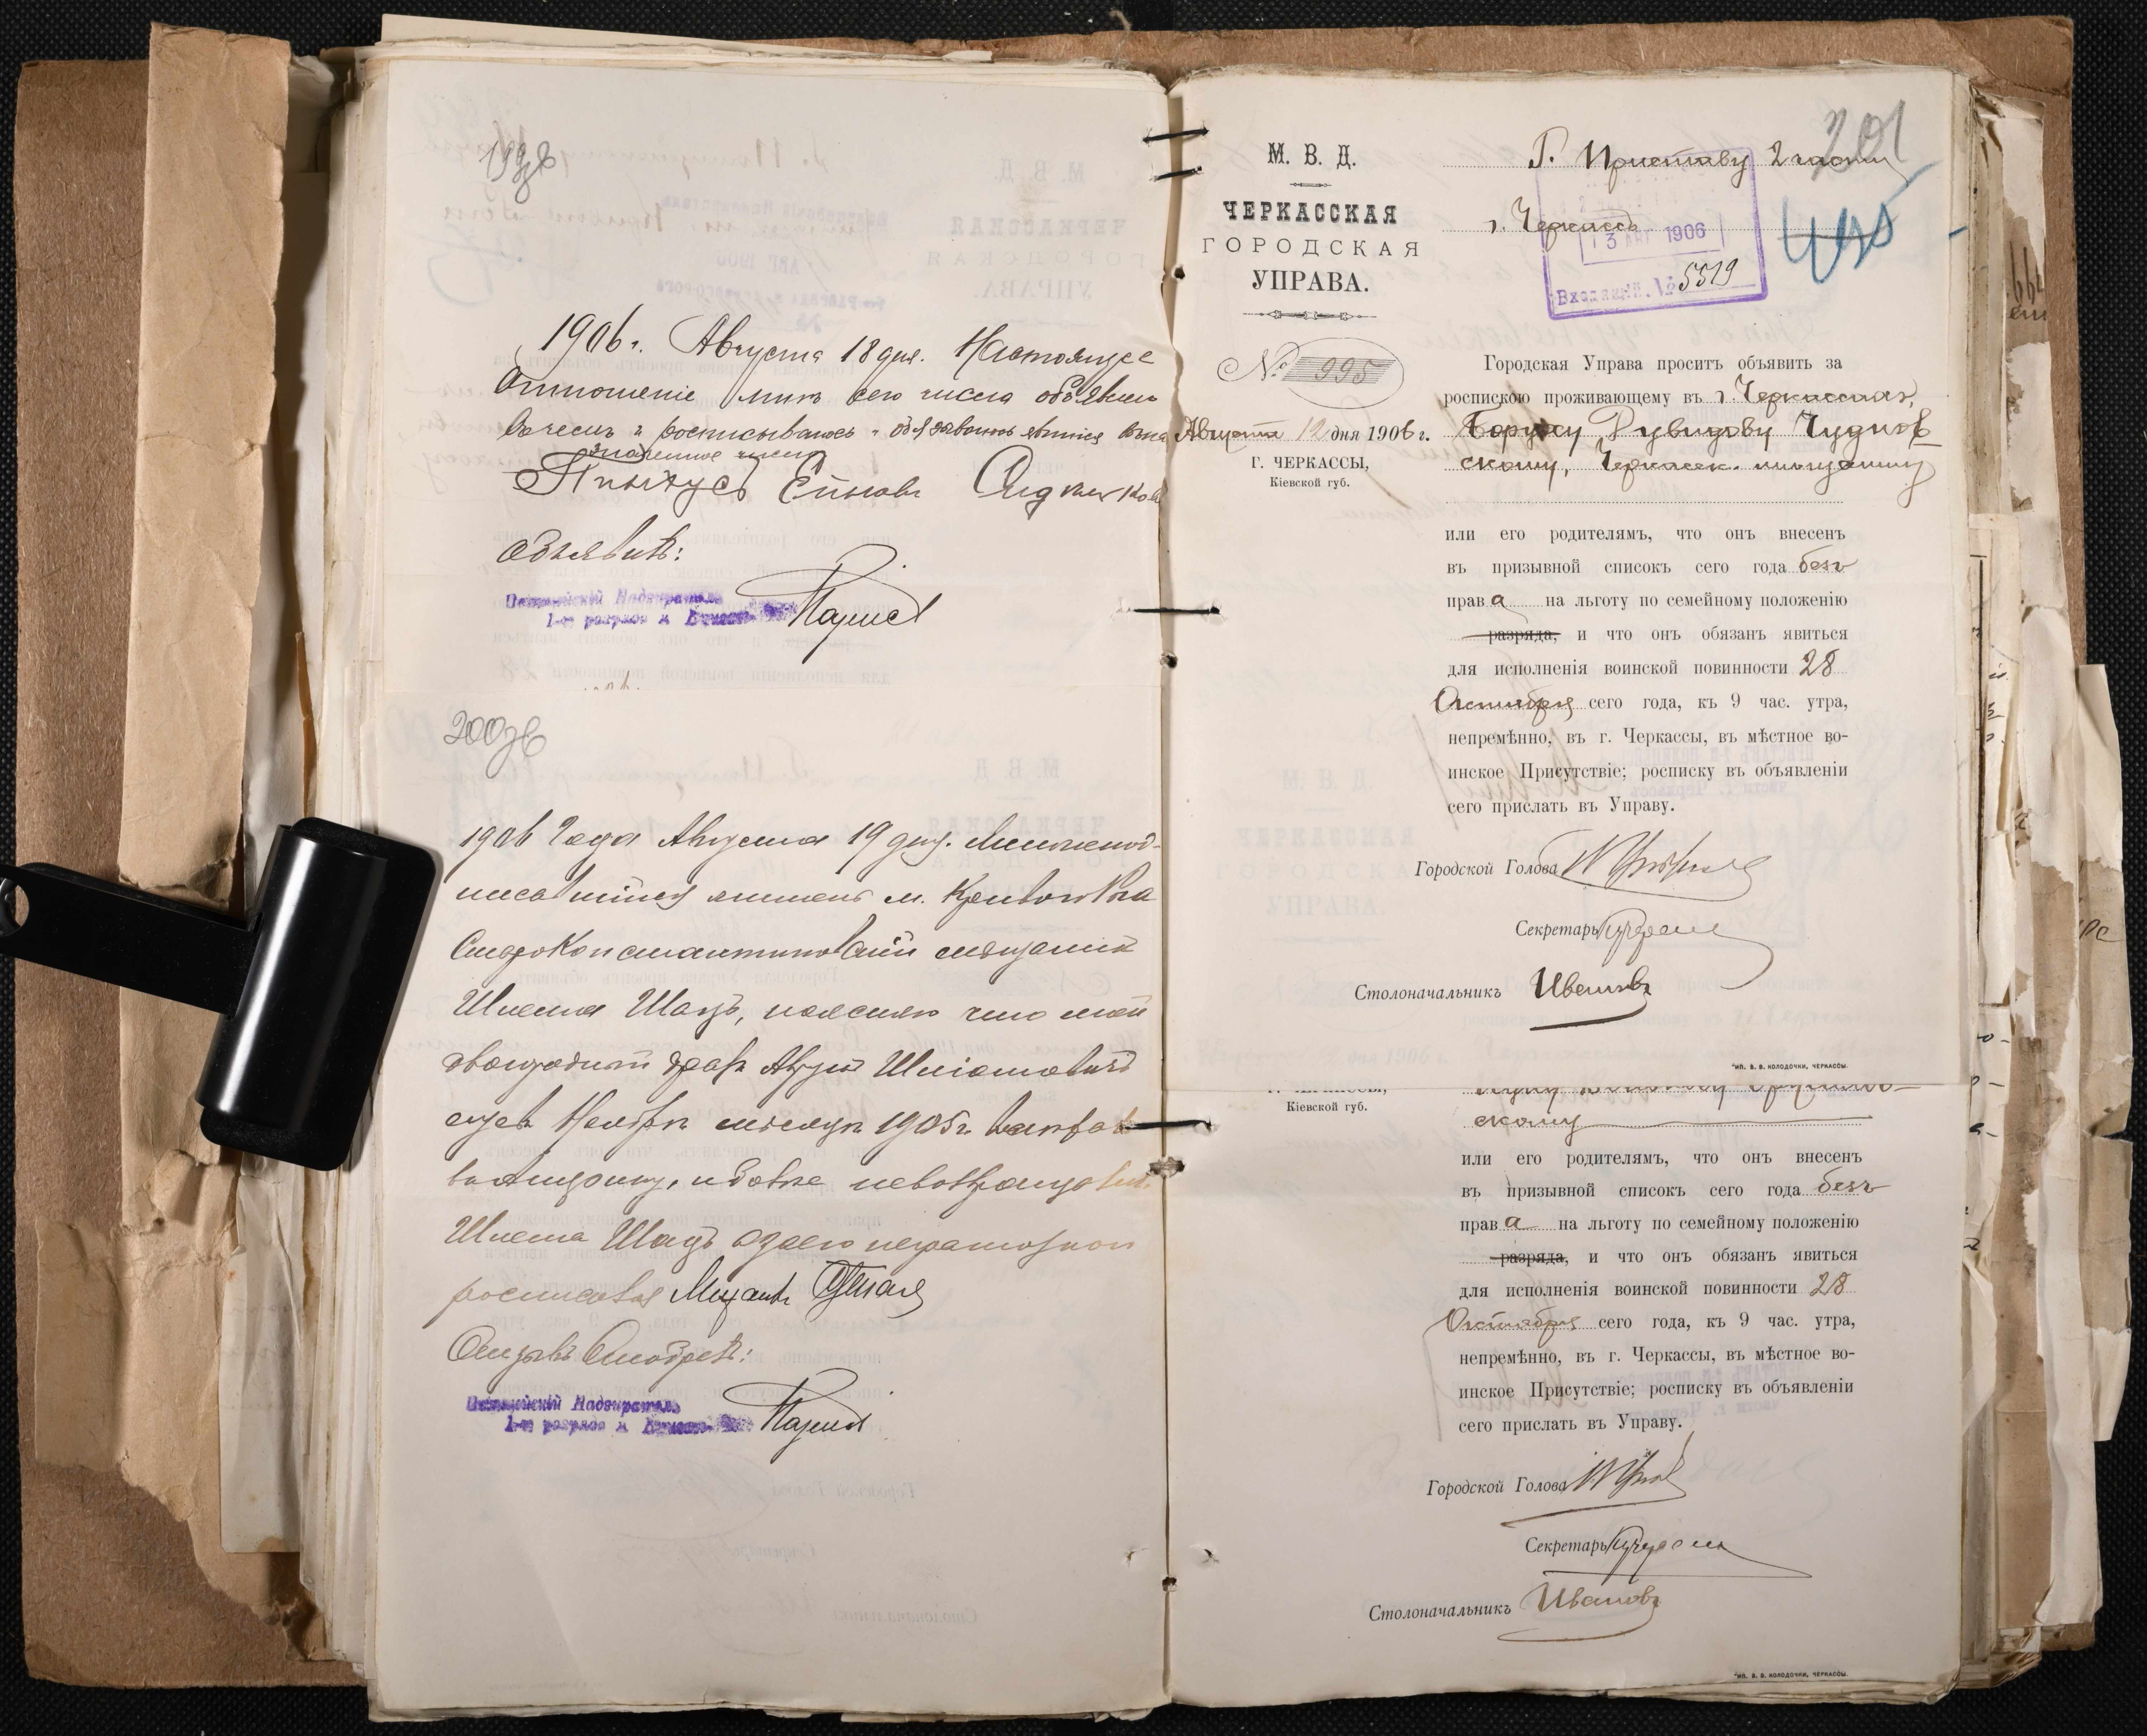 199об
1906г. Августа 18 дня. Настоящее
отношеніе мнѣ сего числа объявлено
въ чемъ и росписываюсь
означенное число
Пинхусъ
объявилъ:
Полицейскій Надзиратель
1-го разряда м.
200об
1906 года Августа 19 дня. Нижепод-
писавшійся житель м.
Староконстантиновскій мѣщанинъ
Шлема Шацъ, поясняю что мой
двоюродный братъ Шліомовичъ
еще въ Ноябрѣ мѣсяцѣ 1905г.
невозвращался
Шлема Шацъ а за его неграмотнаго
росписался
Отзывъ отобралъ:
Полицейскій Надзиратель
1-го разряда м.
201
М. В. Д.
ЧЕРКАССКАЯ
ГОРОДСКАЯ
УПРАВА.
№ 995
Августа 12 дня 1906 г.
Г. ЧЕРКАССЫ,
Кіевской губ.
Г. Приставу 2 части
г. Черкассъ
13 АВГ 1906
Входящій. № 5519
Городская Управа проситъ объявить за
роспискою проживающему въ г. Черкассахъ,
Боруху Рувинову Чуднов
скому, Черкасск. мѣщанину
или его родителямъ, что онъ внесенъ
въ призывной списокъ сего года безъ
права на льготу по семейному положенію
разряда, и что онъ обязанъ явиться
для исполненія воинской повинности 28
Октября сего года, къ 9 час. утра,
непремѣнно, въ г. Черкассы, въ мѣстное во-
инское Присутствіе; росписку въ объявленіи
сего прислать въ Управу.
Городской Голова
Секретарь
Столоначальникъ Ивановъ
ТИП. В. В. КОЛОДОЧКИ, ЧЕРКАССЫ.
Г. ЧЕРКАССЫ,
Кіевской губ.
скому
или его родителямъ, что онъ внесенъ
въ призывной списокъ сего года безъ
права на льготу по семейному положенію
разряда, и что онъ обязанъ явиться
для исполненія воинской повинности 28
Октября сего года, къ 9 час. утра,
непремѣнно, въ г. Черкассы, въ мѣстное во-
инское Присутствіе; росписку въ объявленіи
сего прислать въ Управу.
Городской Голова
Секретарь
Столоначальникъ Ивановъ
ТИП. В. В. КОЛОДОЧКИ, ЧЕРКАССЫ.